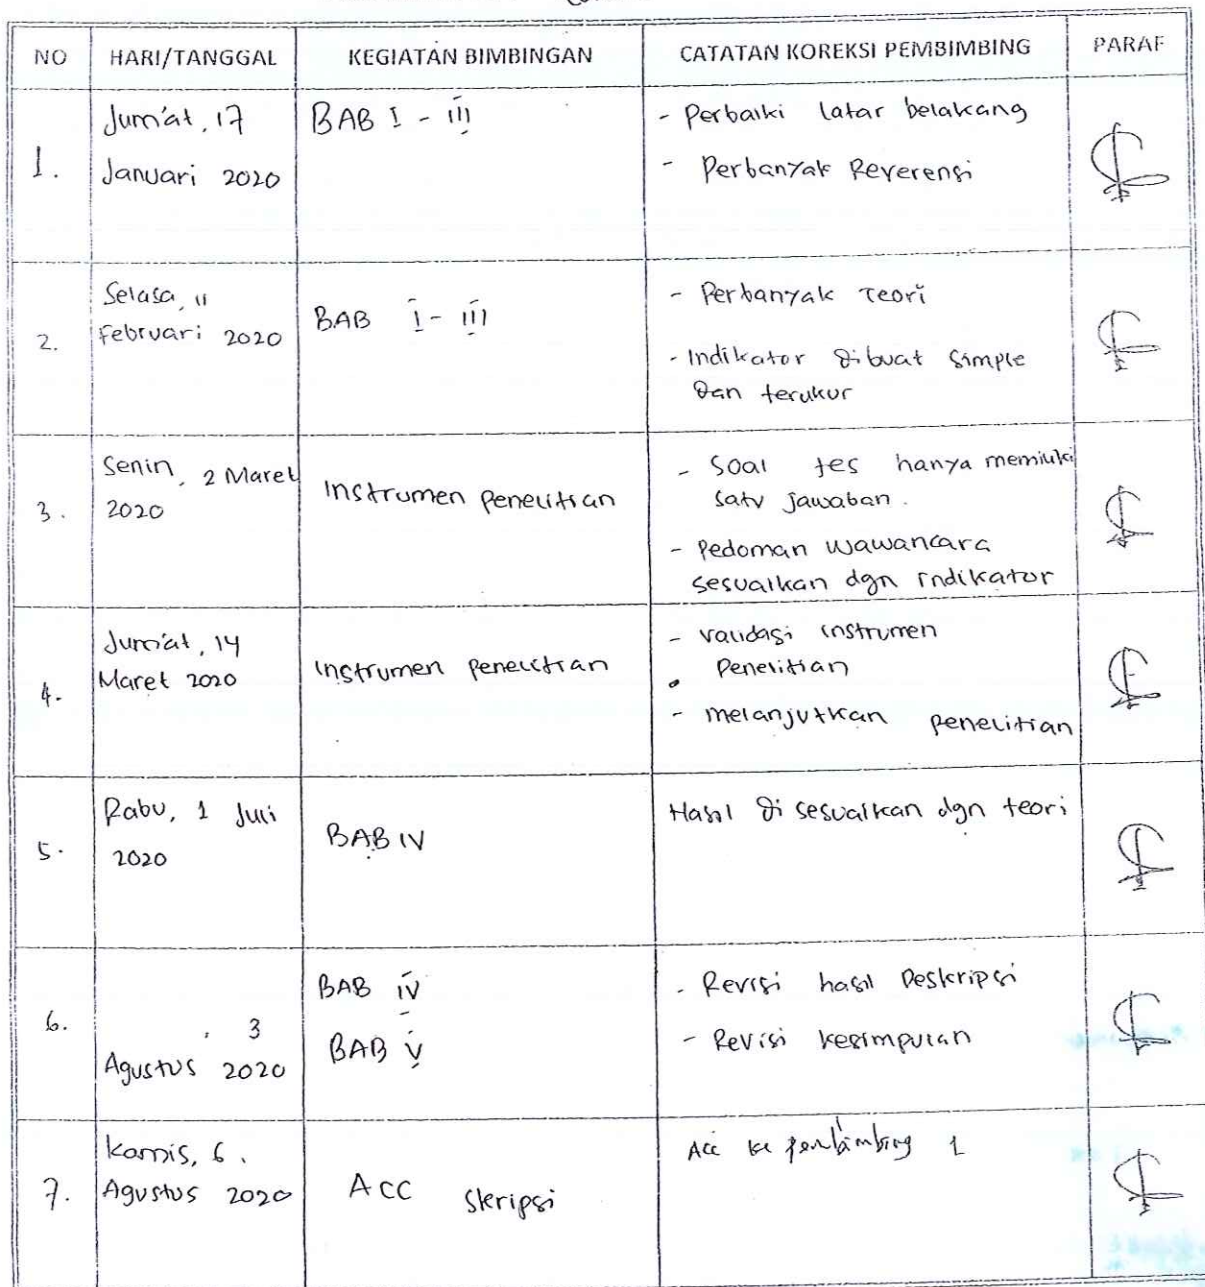 NO HARI/TANGGAL KEGIATAN BIMBINGAN CATATAN KOREKSI PEMBIMBING PARAF
1.
Jum'at, 17
Januari 2020
BAB I - III
- Perbaiki latar belakang
- Perbanyak Reverensi
2.
Selasa, 11
Februari 2020
BAB I - III
- Perbanyak Teori
- Indikator dibuat simple
dan terukur
3.
Senin, 2 Maret
2020
Instrumen penelitian
- Soal tes hanya memiliki
satu jawaban.
- Pedoman wawancara
sesuaikan dgn indikator
4.
Jum'at, 14
Maret 2020
Instrumen penelitian
- validasi instrumen
Penelitian
- melanjutkan penelitian
5.
Rabu, 1 Juli
2020
BAB IV
Hasil di sesuaikan dgn teori
6.
, 3
Agustus 2020
BAB IV
BAB V
- Revisi hasil Deskripsi
- Revisi kesimpulan
7.
Kamis, 6.
Agustus 2020
ACC Skripsi
Acc ke pembimbing 1